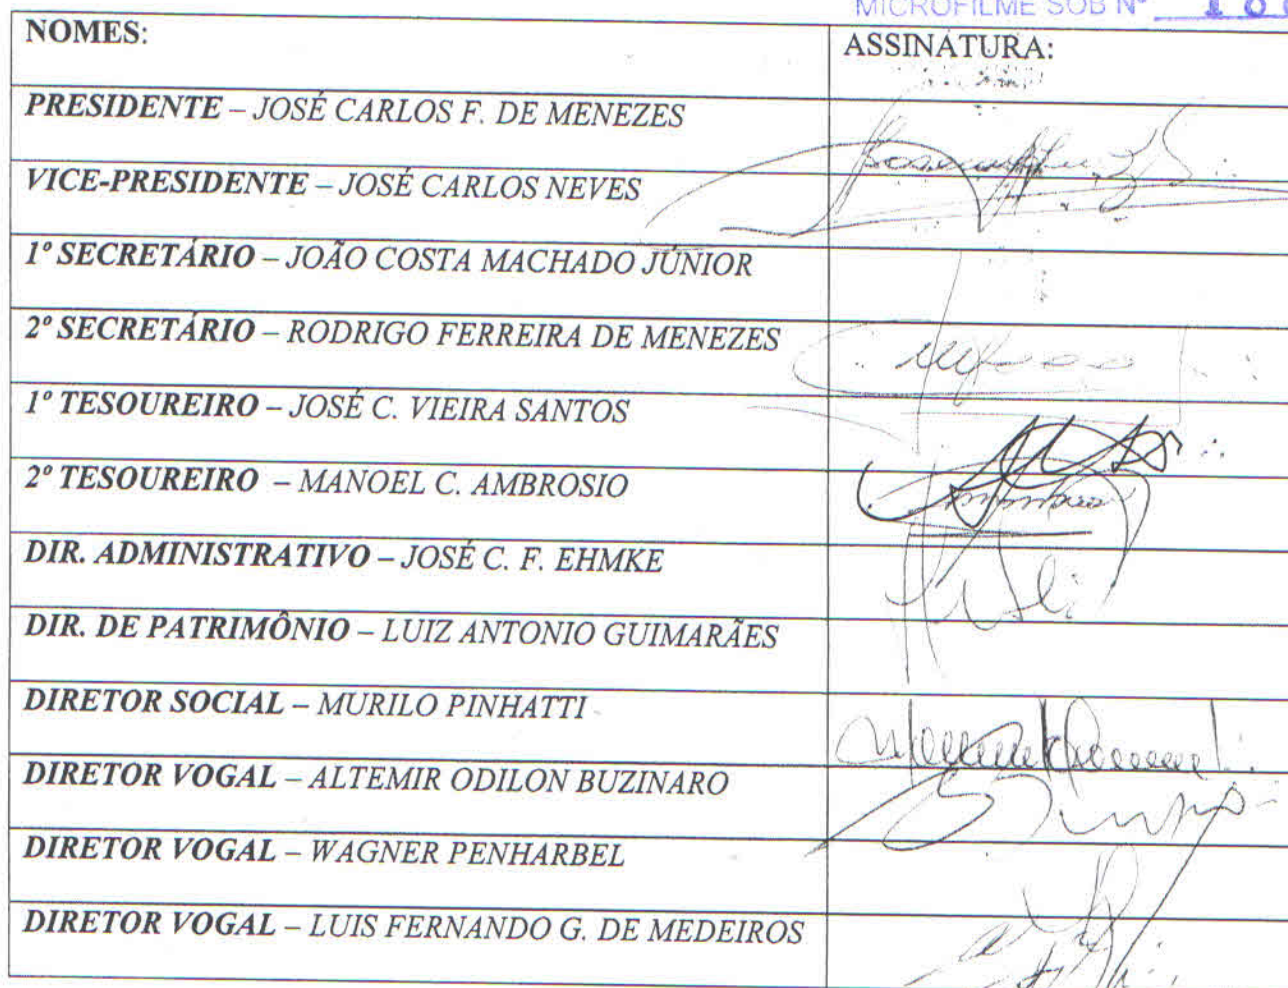 MICROFILME SOB Nº 188
NOMES: ASSINATURA:
PRESIDENTE – JOSÉ CARLOS F. DE MENEZES
VICE-PRESIDENTE – JOSÉ CARLOS NEVES
1º SECRETÁRIO – JOÃO COSTA MACHADO JÚNIOR
2º SECRETÁRIO – RODRIGO FERREIRA DE MENEZES
1º TESOUREIRO – JOSÉ C. VIEIRA SANTOS
2º TESOUREIRO – MANOEL C. AMBROSIO
DIR. ADMINISTRATIVO – JOSÉ C. F. EHMKE
DIR. DE PATRIMÔNIO – LUIZ ANTONIO GUIMARÃES
DIRETOR SOCIAL – MURILO PINHATTI
DIRETOR VOGAL – ALTEMIR ODILON BUZINARO
DIRETOR VOGAL – WAGNER PENHARBEL
DIRETOR VOGAL – LUIS FERNANDO G. DE MEDEIROS